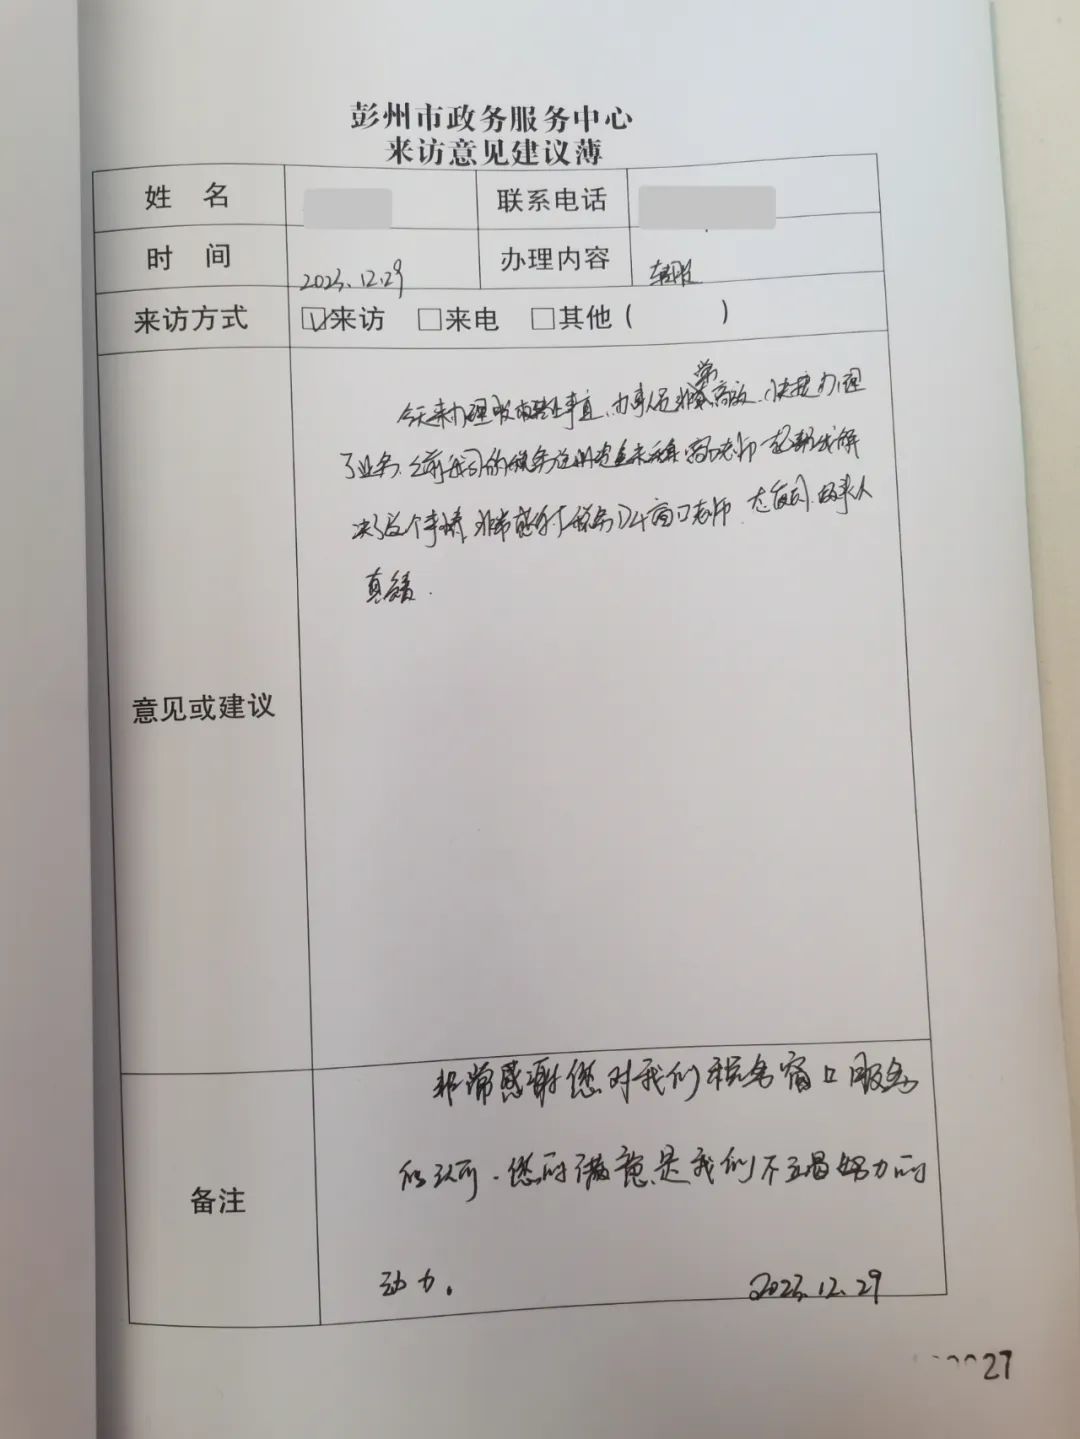 彭州市政务服务中心
来访意见建议薄
姓 名 联系电话
时 间 2023.12.29 办理内容
来访方式 ☑来访 □来电 □其他( )
意见或建议
今天来办理 事宜,办事人员非常高效、快捷办理
了业务,之前我司的税务 老师 解
决了这个事情,非常感谢税务 窗口老师,
真 .
备注
非常感谢您对我们税务窗口服务
的认可,您的满意是我们不 努力的
动力。 2023.12.29
27